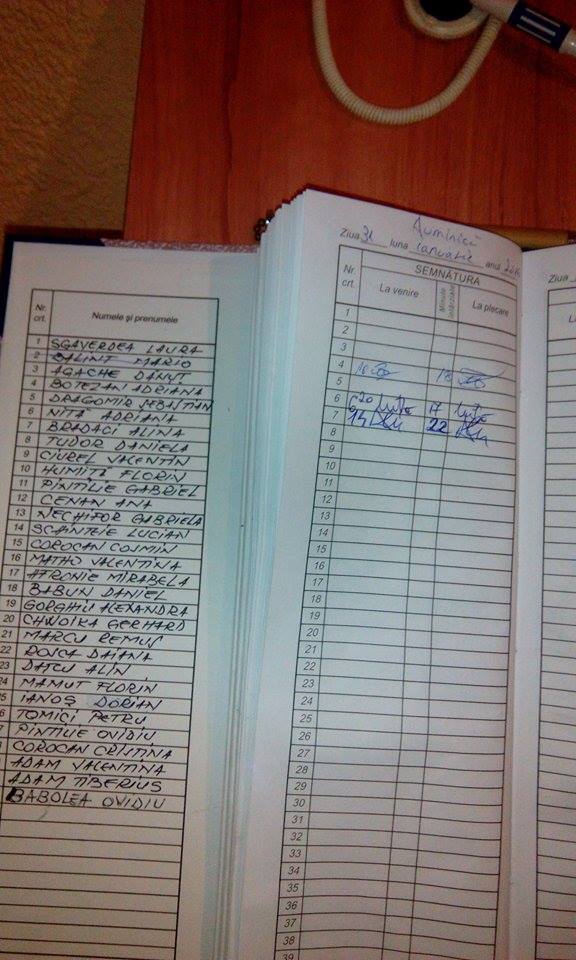 Nr. crt. Numele şi prenumele
1 SGAVERDEA LAURA
2 BALINT MARIO
3 AGACHE DĂNUT
4 BOTEZAN ADRIANA
5 DRAGOMIR SEBASTIAN
6 NITĂ ADRIANA
7 BRADACI ALINA
8 TUDOR DANIELA
9 CIUREL VALENTIN
10 HUMITĂ FLORIN
11 PINTILIE GABRIEL
12 CENAN ANA
13 NECHIFOR GABRIELA
14 SCANTEIE LUCIAN
15 COROCAN COSMIN
16 MATHU VALENTINA
17 MIRABELA
18 BABUN DANIEL
19 GORGHIU ALEXANDRA
20 GERHARD
21 MARCU REMUS
22 DAIANA
23 DATCU ALIN
24 MAMUT FLORIN
25 IANOS DORIAN
6 TOMICI PETRU
PINTILIE OVIDIU
COROCAN CRISTINA
ADAM VALENTINA
ADAM TIBERIUS
BABOLEA OVIDIU
Duminică
Ziua 31 luna ianuarie anul
Nr. crt. SEMNĂTURA
La venire Minute întârziere La plecare
1
2
3
4
5
6
7 14 22
8
9
10
11
12
13
14
15
16
17
18
19
20
21
22
23
24
25
26
27
28
29
30
31
32
33
34
35
36
37
38
39
Ziua